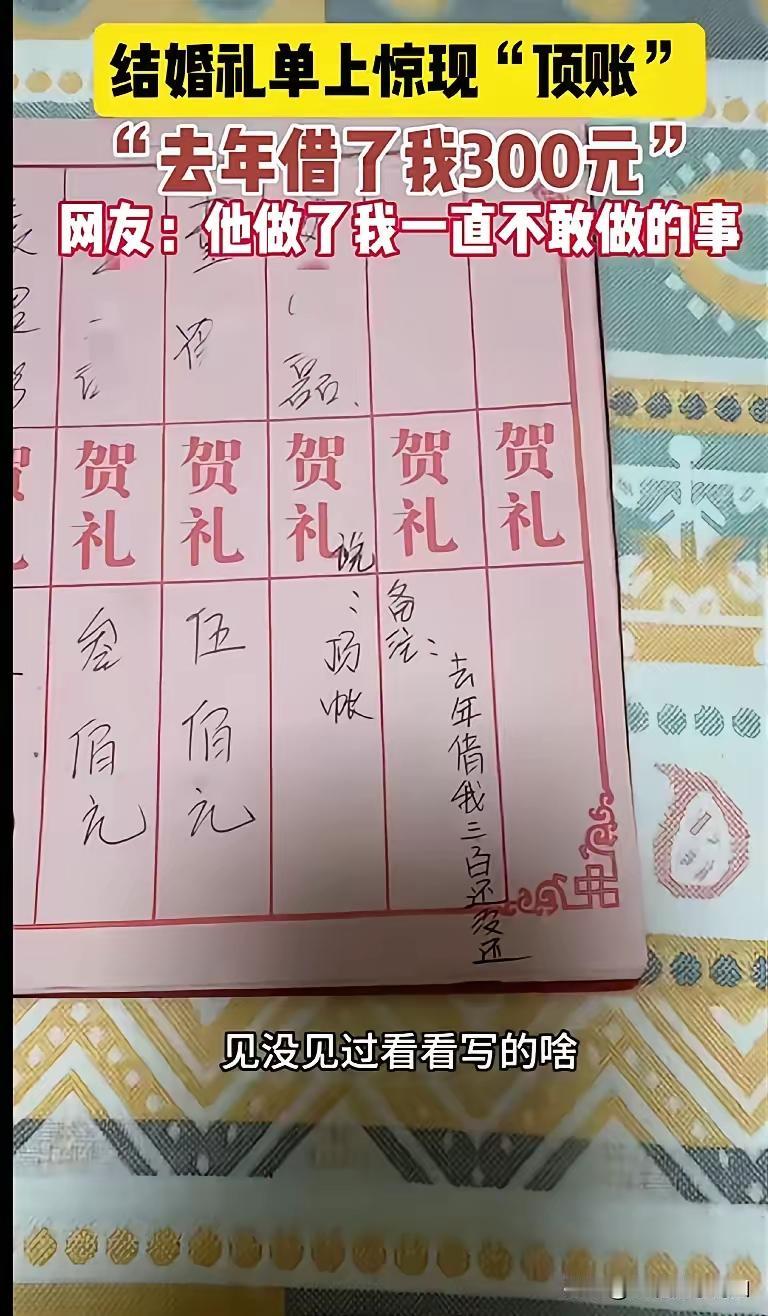 结婚礼单上惊现“顶账”
“去年借了我300元”
网友：他做了我一直不敢做的事
磊
贺礼
贺礼
贺礼
贺礼
贺礼
叁佰元
伍佰元
说：顶帐
备注：
去年借我三百还没还
见没见过看看写的啥